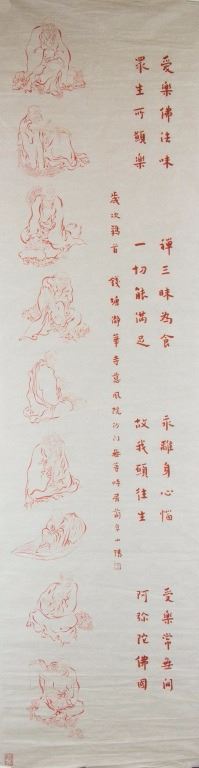 愛樂佛法味 禪三昧為食 永離身心惱 受樂常無間
眾生所願樂 一切能滿足 故我願往生 阿彌陀佛國
歲次鶉首 錢塘 華寺慈風院沙門